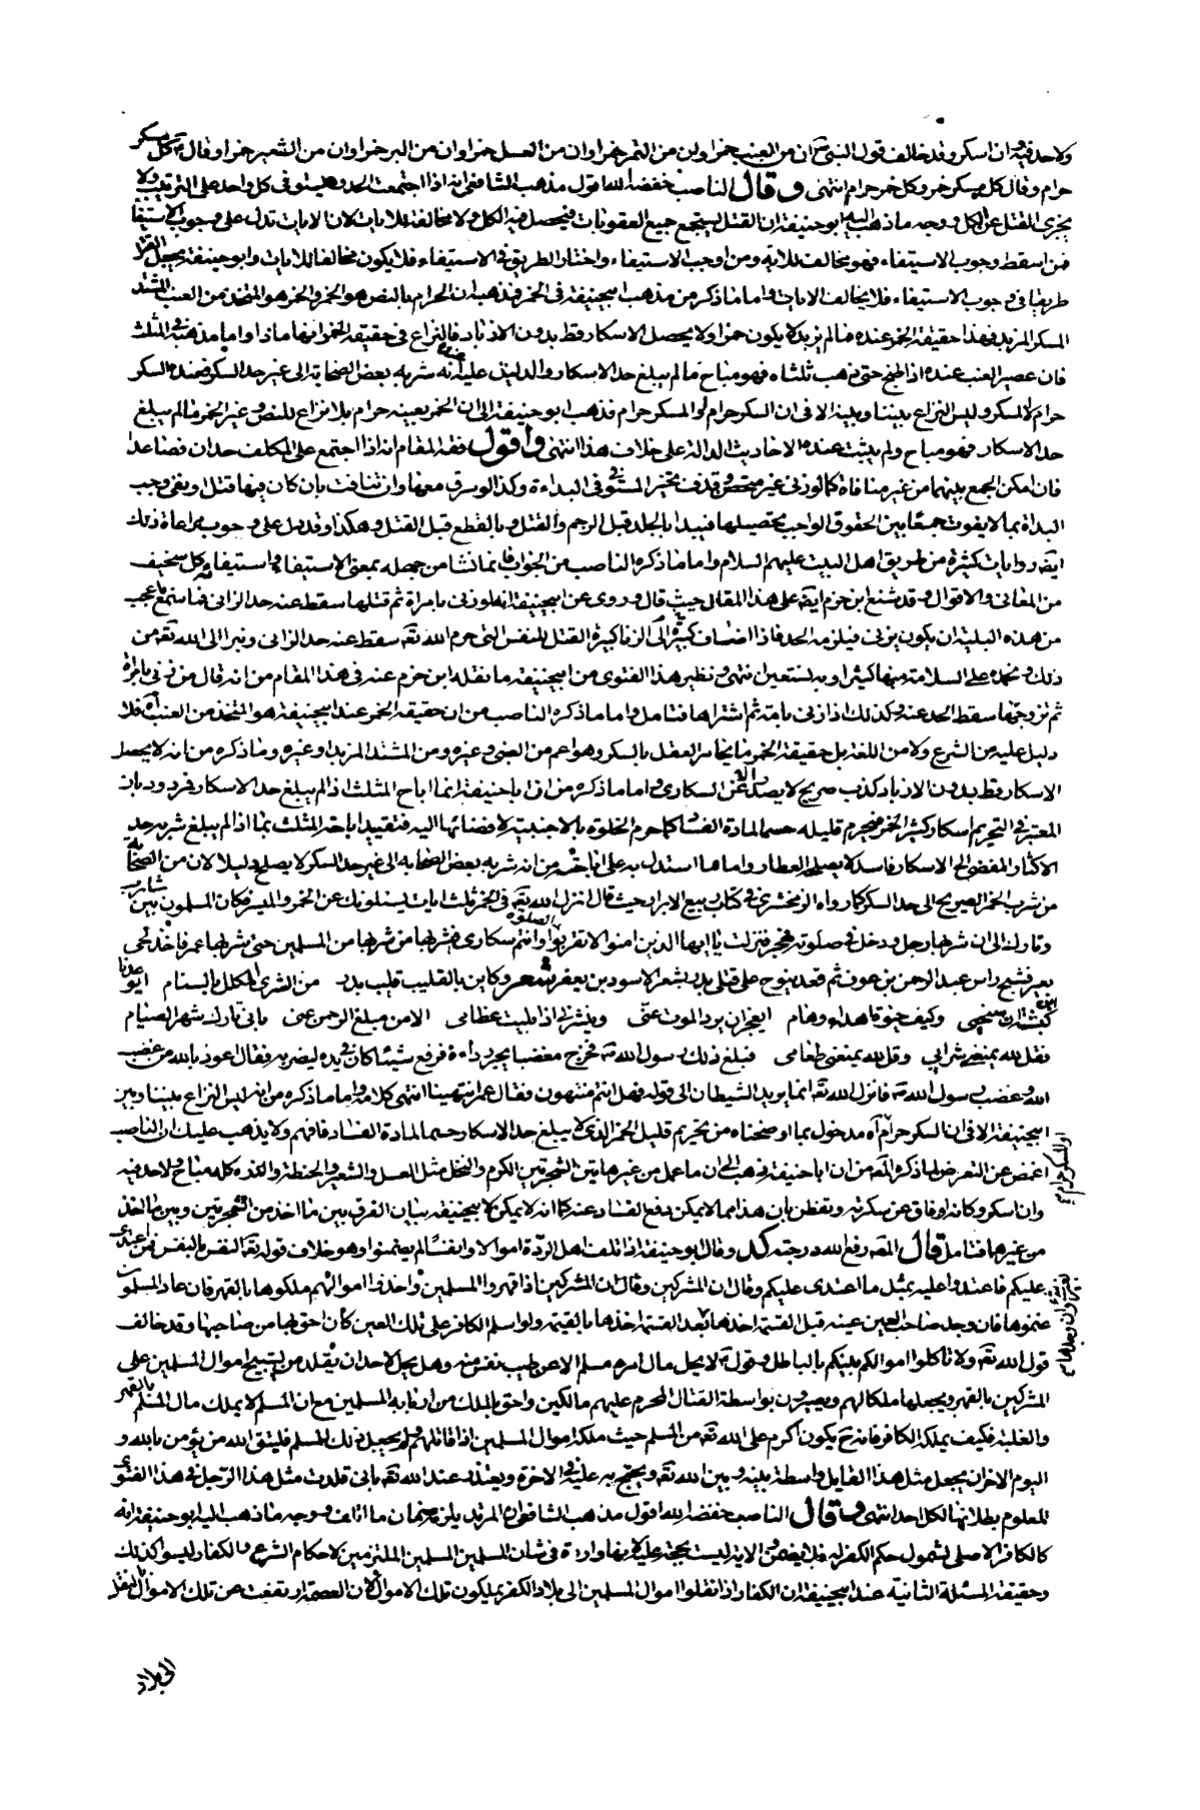 ولا حد فيه وان اسكر وقد خالف قول النبي ص ان من العنب خمرا وان من التمر خمرا وان من العسل خمرا وان من البر خمرا وان من الشعير خمرا وقال ص كل مسكر
حرام وقال كل مسكر خمر وكل خمر حرام انتهى وقال الناصب خفضه الله اقول مذهب الشافعي انه اذا اجتمعت الحدود يستوفى كل واحد على الترتيب ولا
يجزى القتل عن الكل ووجه ما ذهب اليه ابو حنيفة ان القتل يستجمع جميع العقوبات فيحصل منه الكل ولا مخالفة للايات لان الايات تدل على وجوب الاستيفا
فمن اسقط وجوب الاستيفاء فهو مخالف للاية ومن اوجب الاستيفاء واختار الطريق في الاستيفاء فلا يكون مخالفا للايات وابو حنيفة يجعل القتل
طريقا في وجوب الاستيفاء فلا يخالف الايات واما ما ذكر من مذهب ابيحنيفة في الخمر فذهب ان الحرام بالنص هو الخمر والخمر هو المتخذ من العنب المشتد
المسكر المزبد فهذا حقيقة الخمر عنده فما لم يزبد لا يكون خمرا ولا يحصل الاسكار قط بدون الازباد فالنزاع في حقيقة الخمر انها ماذا واما مذهبه في المثلث
فان عصير العنب عنده اذا طبخ حتى ذهب ثلثاه فهو مباح ما لم يبلغ حد الاسكار والدليل عليه انه شربه بعض الصحابة الى غير حد السكر فعنده السكر
حرام لا المسكر وليس النزاع بيننا وبينه الا في ان السكر حرام او المسكر حرام فذهب ابو حنيفة الى ان الخمر بعينه حرام بلا نزاع للنص وغير الخمر ما لم يبلغ
حد الاسكار فهو مباح ولم يثبت عنده الاحاديث الدالة على خلاف هذا انتهى واقول فقه المقام انه اذا اجتمع على المكلف حدان فصاعدا
فان امكن الجمع بينهما من غير منافاة كما لو زنى غير محصن وقذف تخير المستوفي في البداءة وكذا لو سرق معها وان تنافت بان كان فيها قتل او نفى وجب
البداة بما لا يفوت جمعا بين الحقوق الواجب تحصيلها فيبدا بالجلد قبل الرجم والقتل وبالقطع قبل القتل وهكذا وقد دل على وجوب مراعاة ذلك
ايضا روايات كثيرة من طريق اهل البيت عليهم السلام واما ما ذكره الناصب من الجواب فانما نشا من حمله بمعنى الاستيفا في استيفاء كل سخيف
من المعاني والاقوال وقد شنع ابن حزم ايضا على هذا المقال حيث قال وروى عن ابيحنيفة انه لو زنى بامراة ثم قتلها سقط عنه حد الزاني فما سمع باعجب
من هذه البلية ان يكون يزني فيلزمه الحد فاذا اضاف الى الزنا كبيرة القتل للنفس التي حرم الله تعالى سقط عنه حد الزاني ونبرا الى الله تعالى من
ذلك ونحمده على السلامة منها كثيرا وبه نستعين انتهى ونظير هذا الفتوى من ابيحنيفة ما نقله ابن حزم عنه في هذا المقام من انه قال من زنى بامراة
ثم تزوجها سقط الحد عنه وكذلك اذا زنى بامة ثم اشتراها فتامل واما ما ذكره الناصب من ان حقيقة الخمر عند ابيحنيفة هو المتخذ من العنب اه فلا
دليل عليه من الشرع ولا من اللغة بل حقيقة الخمر ما يخامر العقل بالسكر وهو اعم من العنبي وغيره ومن المشتد المزبد او غيره وما ذكره من انه لا يحصل
الاسكار قط بدون الازباد كذب صريح لا يصدر الا عن السكارى واما ما ذكره من ان اباحنيفة انما اباح المثلث اذا لم يبلغ حد الاسكار فمردود بان
المعتبر في التحريم اسكار كثير الخمر فيحرم قليله حسما لمادة الفساد كما حرم الخلوة بالاجنبية لافضائها اليه فتقييد اباحة المثلث بما اذا لم يبلغ شربه حد
الاكثار المفضي الى الاسكار فاسد لا يصلحه العطار واما ما استدل به على اباحته من انه شربه بعض الصحابة الى غير حد السكر لا يصلح دليلا لان من الصحابة
من شرب الخمر الصريح الى حد السكر كما رواه الزمخشري في كتاب ربيع الابرار حيث قال انزل الله تعالى في الخمر ثلث ايات يسئلونك عن الخمر والميسر فكان المسلمون بين شارب
وتارك الى ان شربها رجل ودخل في صلوته فهجر فنزلت يا ايها الذين امنوا لا تقربوا الصلوة وانتم سكارى فشربها من شربها من المسلمين حتى شربها عمر فاخذ لحي
بعير فشج راس عبد الرحمن بن عوف ثم قعد ينوح على قتلى بدر بشعر الاسود بن يعفر شعر وكاين بالقليب قليب بدر من الشرى المكلل بالسنام ايوعدنا
ابن كبشة ان سنحيى وكيف حيوة اصداء وهام ايعجز ان يرد الموت عني وينشرني اذا بليت عظامي الا من مبلغ الرحمن عني باني تارك شهر الصيام
فقل لله يمنعني شرابي وقل لله يمنعني طعامي فبلغ ذلك رسول الله ص فخرج مغضبا يجر رداءه فرفع شيئا كان في يده ليضربه فقال اعوذ بالله من غضب
الله وغضب رسول الله ص فانزل الله تعالى انما يريد الشيطان الى قوله فهل انتم منتهون فقال عمر انتهينا انتهى كلامه واما ما ذكره من انه ليس النزاع بيننا وبين
ابيحنيفة الا في ان السكر حرام اه مدخول بما اوضحناه من تحريم قليل الخمر الذي لا يبلغ حد الاسكار حسما لمادة الفساد فافهم ولا يذهب عليك ان الناصب
او المسكر حرام
اغمض عن التعرض لما ذكره المص من ان ابا حنيفة ذهب الى ان ما عمل من غير هاتين الشجرتين الكرم والنخل مثل العسل والشعير والحنطة والذرة كله مباح ولا حد فيه
وان اسكر وكانه افاق عن سكرته وتفطن بان هذا مما لا يمكن دفع الفساد عنه كما انه لا يمكن لابيحنيفة بيان الفرق بين ما اخذ من الشجرتين وبين ما اتخذ
من غيرها فتامل قال المص رفع الله درجته كد وقال ابو حنيفة اذا تلف اهل الردة اموالا وانفسا لم يضمنوا وهو خلاف قوله تعالى النفس بالنفس فمن اعتدى
عليكم فاعتدوا عليه بمثل ما اعتدى عليكم وقال ان المشركين وقال ان المشركين اذا قهروا المسلمين واخذوا اموالهم ملكوها بالقهر فان عاد المسلمون
غنموها فان وجد صاحب العين عينه قبل القسمة اخذها بعد القسمة اخذها بالقيمة ولو اسلم الكافر على تلك العين كان احق بها من صاحبها وقد خالف
قول الله تعالى ولا تاكلوا اموالكم بينكم بالباطل وقوله ص لا يحل مال امرء مسلم الا عن طيب نفس منه وهل يحل لاحد ان يقلد من يستبيح اموال المسلمين على
المشركين بالقهر ويجعلها ملكا لهم ويصيرون بواسطة القتال المحرم عليهم مالكين واحق بالملك من اربابه المسلمين مع ان المسلم لا يملك مال المسلم بالقهر
والغلبة فكيف يملكه الكافر فانه ح يكون اكرم على الله تعالى من المسلم حيث ملكه اموال المسلمين اذا قاتلهم ولم يجعل ذلك للمسلم فليتق الله من يؤمن بالله و
اليوم الاخر ان يجعل مثل هذا القايل واسطة بينه وبين الله تعالى ويحتج به عليه في الاخرة ويعتذر عند الله تعالى باني قلدت مثل هذا الرجل في هذا الفتوى
المعلوم بطلانها لكل احد انتهى وقال الناصب خفضه الله اقول مذهب الشافعي ان المرتد يلزم ضمان ما اتلف ووجه ما ذهب اليه ابو حنيفة انه
كالكافر الاصلي لشمول حكم الكفر له فلا يضمن والاية ليست بحجة عليه لانها واردة في شان المسلمين المسلمين الملتزمين لاحكام الشرع والكفار ليسوا كذلك
وحقيقة المسئلة الثانية عند ابيحنيفة ان الكفار اذا نقلوا اموال المسلمين الى بلاد الكفر يملكون تلك الاموال لان العصمة ارتفعت عن تلك الاموال بنقلها
الى بلاد